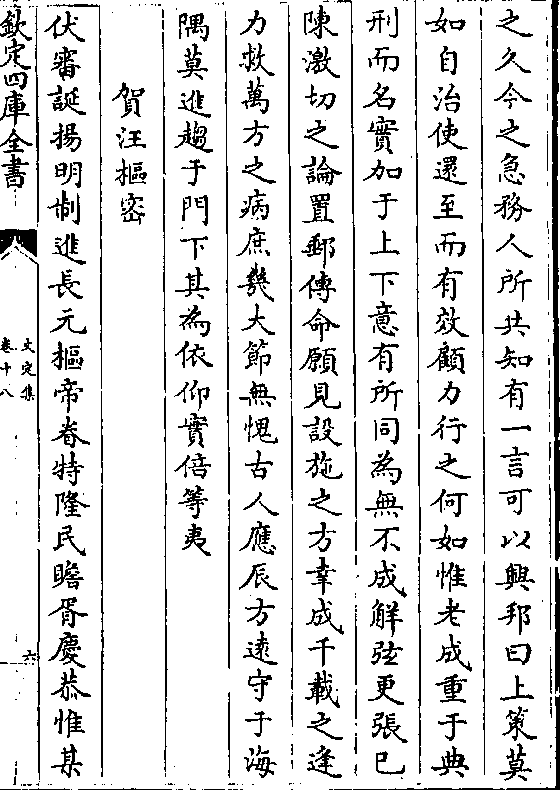 之久今之急務人所共知有一言可以興邦曰上策莫
如自治使還至而有效顧力行之何如惟老成重于典
刑而名實加于上下意有所同為無不成解弦更張已
陳激切之論置郵傳命願見設施之方幸成千載之逢
力救萬方之病庶幾大節無愧古人應辰方逺守于海
隅莫進趨于門下其為依仰實倍等夷
賀汪樞密
伏審誕揚明制進長元樞帝眷特隆民瞻胥慶恭惟某
欽定四庫全書
文定集
卷十八
六